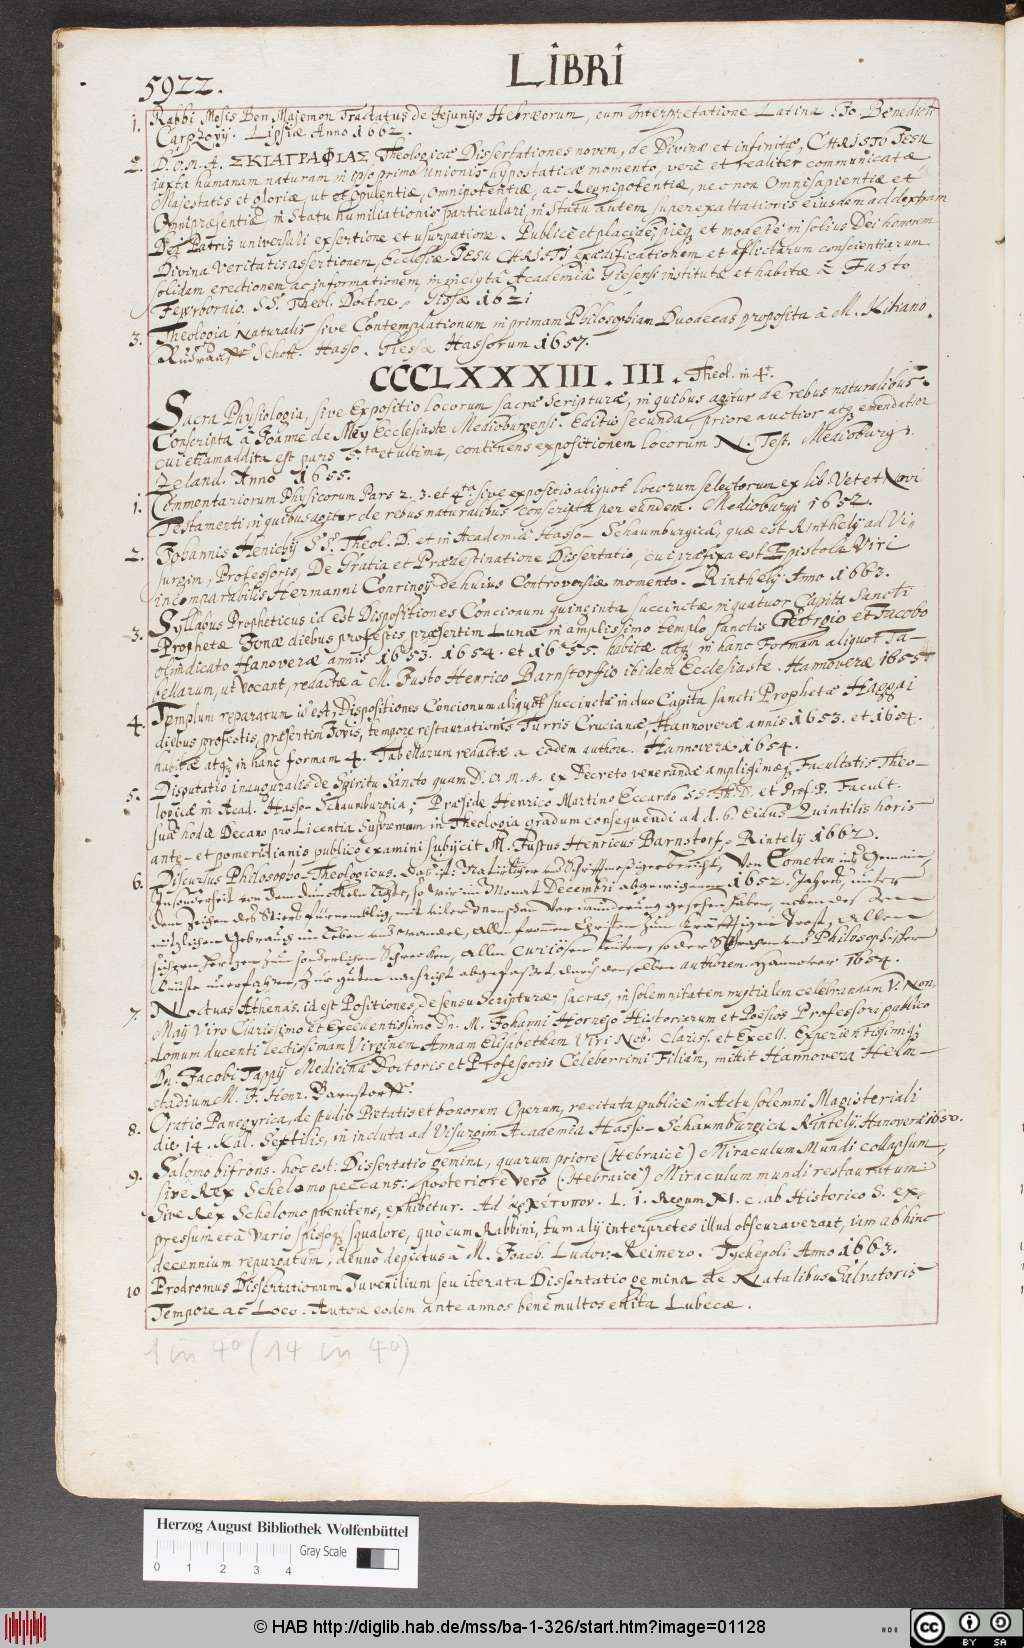 5922.
LIBRI
1. Rabbi Mosis Ben Majemon Tractatus de Jejunijs Hebræorum, cum Interpretatione Latina Jo. Benedicti
Carpzovij. Lipsiæ Anno 1662.
2. D. O. M. A. ΣΚΙΑΓΡΑΦΙΑΣ Theologicæ Dissertationes novem, de Divina et infinita, CHRISTO JESU
juxta humanam naturam in ipso primo unionis hypostaticæ momento, verè et realiter communicatæ
Majestatis et gloriæ, ut et opulentiæ, omnipotentiæ, ac Regnipotentiæ, nec non Omnisapientiæ et
Omnipræsentiæ in Statu humiliationis particulari, in Statu autem superexaltationis ejusdem ad dextram
Dei Patris universali exsertione et usurpatione. Publicè et placidè, pieq; et modestè in solius Dei honorem
Divina Veritatis assertionem, Ecclesiæ JESU CHRISTI exædificationem et afflictarum conscientiarum
solidam erectionem ac informationem in inclyta Academia Giesensi institutæ et habitæ à Justo
Fewrbornio. SS. Theol. Doctore. Gissæ 1621
3. Theologia Naturalis sive Contemplationum in primam Philosophiam Duodecas proposita à M. Kiliano
Rudrauff Schott. Hasso. Giessæ Hassorum 1657.
CCCLXXXIII. III. Theol. in 4t.
Sacra Physiologia, sive Expositio locorum sacræ Scripturæ, in quibus agitur de rebus naturalibus.
Conscripta à Joanne de Mey Ecclesiaste Medioburgensi. Editio secunda priore auctior atq; emendatior
cui etiam addita est pars 5.ta et ultima, continens expositionem locorum N. Test. Medioburgi.
Zeland. Anno 1655.
1. Commentariorum Physicorum Pars 2. 3. et 4ta. sive expositio aliquot locorum selectorum ex lib. Vet et Novi
Testamenti in quibus agitur de rebus naturalibus conscripta per eundem. Medioburgi 1652.
2. Johannis Henichij SS. Theol. D. et in Academia Hasso-Schaumburgica, quæ est Rinthelij ad Vi-
surgim, Professoris, De Gratia et Prædestinatione Dissertatio, cui præfixa est Epistola Viri
incomparabilis Hermanni Conringij de hujus Controversiæ momento. Rinthelij Anno 1663.
3. Syllabus Propheticus id est Dispositiones Concionum quinquinta succinctæ in quatuor Capita Sancti
Prophetæ Jonæ diebus profestis præsertim Lunæ in amplissimo templo sanctis Georgio et Jacobo
dicato Hanoveræ annis 1653. 1654. et 1655. habitæ atq; in hanc Formam aliquot Ta-
bellarum, ut vocant, redactæ à M. Justo Henrico Barnstorffio ibidem Ecclesiaste. Hannoveræ 1655
4. Templum reparatum id est Dispositiones Concionum aliquot succinctæ in duo Capita sancti Prophetæ Haggai
diebus profestis, præsertim Jovis, tempore restaurationis Turris Crucianæ, Hannoveræ annis 1653. et 1654.
habitæ atq; in hanc formam 4. Tabellarum redactæ a eodem authore. Hannoveræ 1654.
5. Disputatio inauguralis de Spiritu Sancto quam D. O. M. A. ex Decreto venerandæ amplissimæq; Facultatis Theo-
logicæ in Acad. Hasso-Schaumburgica; Præside Henrico Martino Eccardo SS. Th. D. et Prof. P. Facult.
suæ hodie Decano pro Licentia Supremum in Theologia gradum consequendi ad d. 6. Eidus Quintilis horis
ante- et pomeridianis publico examini subijcit M. Justus Henricus Barnstorf. Rintelij 1662.
6. Discursus Philosopho-Theologicus. Das ist: Natürlicher und Schrifftmeßiger bericht, Von Cometen ins Gemein,
Insonderheit von dem dunckeln Licht, so wir im Monat Decembri abgewichenen 1652. Jahres, unter
dem Zeichen des Stiers fürnemblig, mit vieler Menschen Verwunderung gesehen haben, neben des
nützlichen Gebrauch im Leben und wandel, Allen frommen Christen zum kräfftigen Trost, Allen
sichern Hertzen zum sonderlichen Schrecken, Allen Curiösen Leuten, so der Sprachen und Philosophischen
Künste unerfahren, Zur guten nachricht abgefasset durch denselben authorem. Hannover 1654.
7. Noctuas Athenas, id est Positiones, de sensu Scripturæ sacræ, in solemnitatem nuptialem celebrandam V. Non.
Maij Viro Clarissimo et Excellentissimo Dn. M. Johanni Hornejo Historiarum et Poësios Professori publico
domum ducenti lectissimam Virginem Annam Elisabetham Viri Nob. Clariss. et Excell. Experientissimiq;
Dn. Jacobi Tappij Medicinæ Doctoris et Professoris Celeberrimi Filiam, mittit Hannovera Helm-
stadium M. J. Henr. Barnstorff.
8. Oratio Panegyrica, de studio Pietatis et bonorum Operum, recitata publicè in Actu solemni Magisteriali
die 14. Kal. Sextilis, in incluta ad Visurgim Academia Hasso-Schaumburgica Rintelij. Hanoveræ 1650.
9. Salomo bifrons. hoc est: Dissertatio gemina, quarum priore (Hebraicè) Miraculum Mundi collapsum,
sive Rex Schelomo peccans: posteriore verò (Hebraicè) Miraculum mundi restauratum
Sive Rex Schelomo pœnitens, exhibetur. Ad L. 1. Regum XI. c. ab Historico S. ex-
pressum et à vario spissoq; squalore, quò cum Rabbini, tum alij interpretes illud obscuraverant, jam ab hinc
decennium repurgatum, denuò depictus à M. Joach. Ludov. Reimero. Tychepoli Anno 1663.
10 Prodromus Dissertationum Juvenilium seu iterata Dissertatio gemina de Natalibus Salvatoris
Tempore ac Loco. Autore eodem ante annos benè multos edita Lubecæ.
1 in 4° (14 in 4°)
Herzog August Bibliothek Wolfenbüttel
Gray Scale
0 1 2 3 4
© HAB http://diglib.hab.de/mss/ba-1-326/start.htm?image=01128
cc BY SA